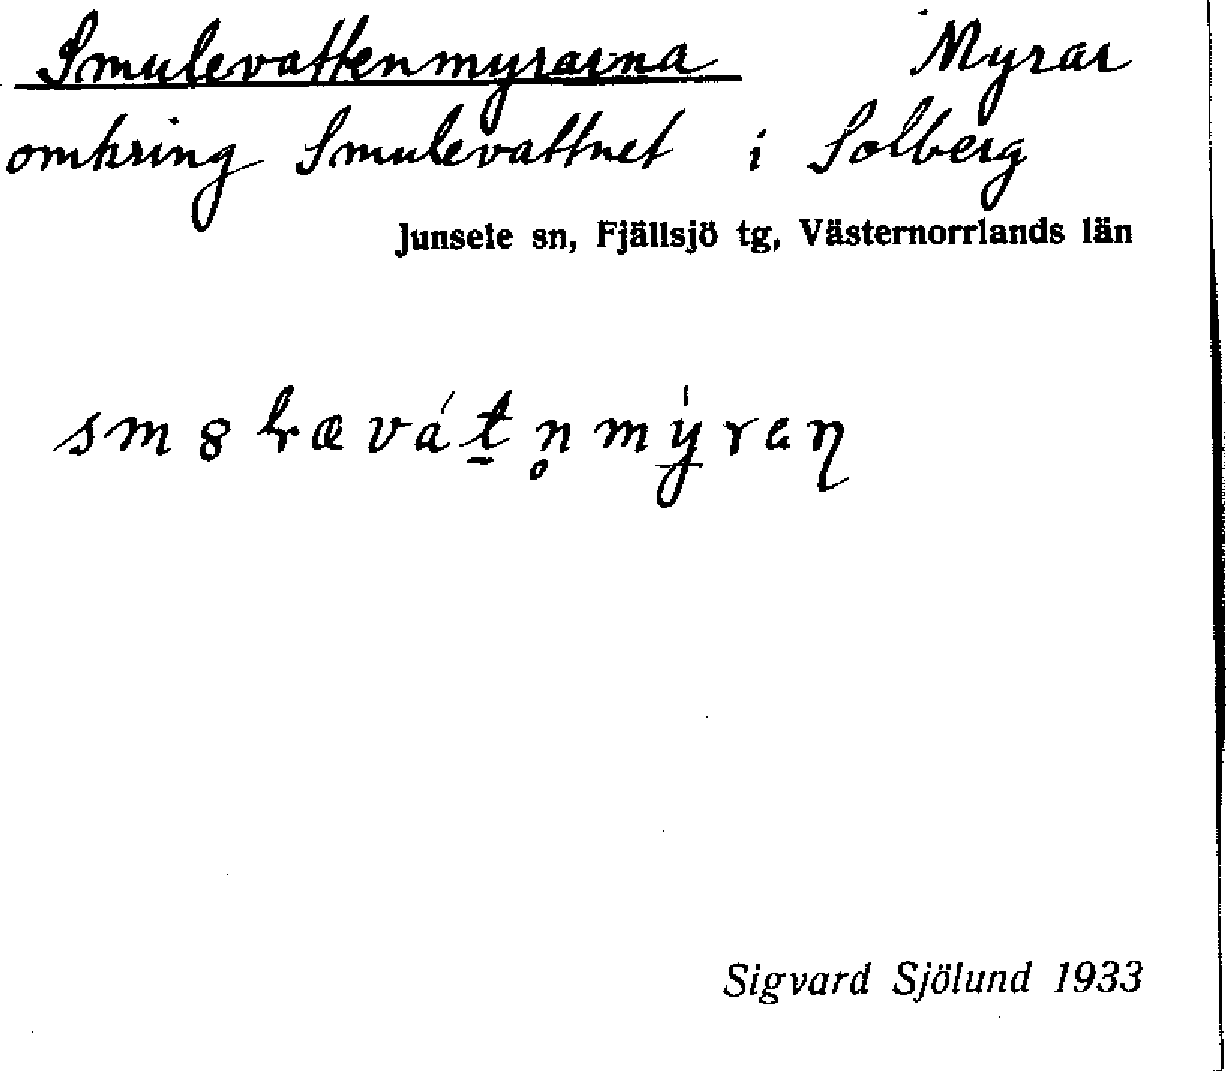 Smulevattenmyrarna Myrar
omkring Smulevattnet i Solberg
Junsele sn, Fjällsjö tg, Västernorrlands län
Sigvard Sjölund 1933